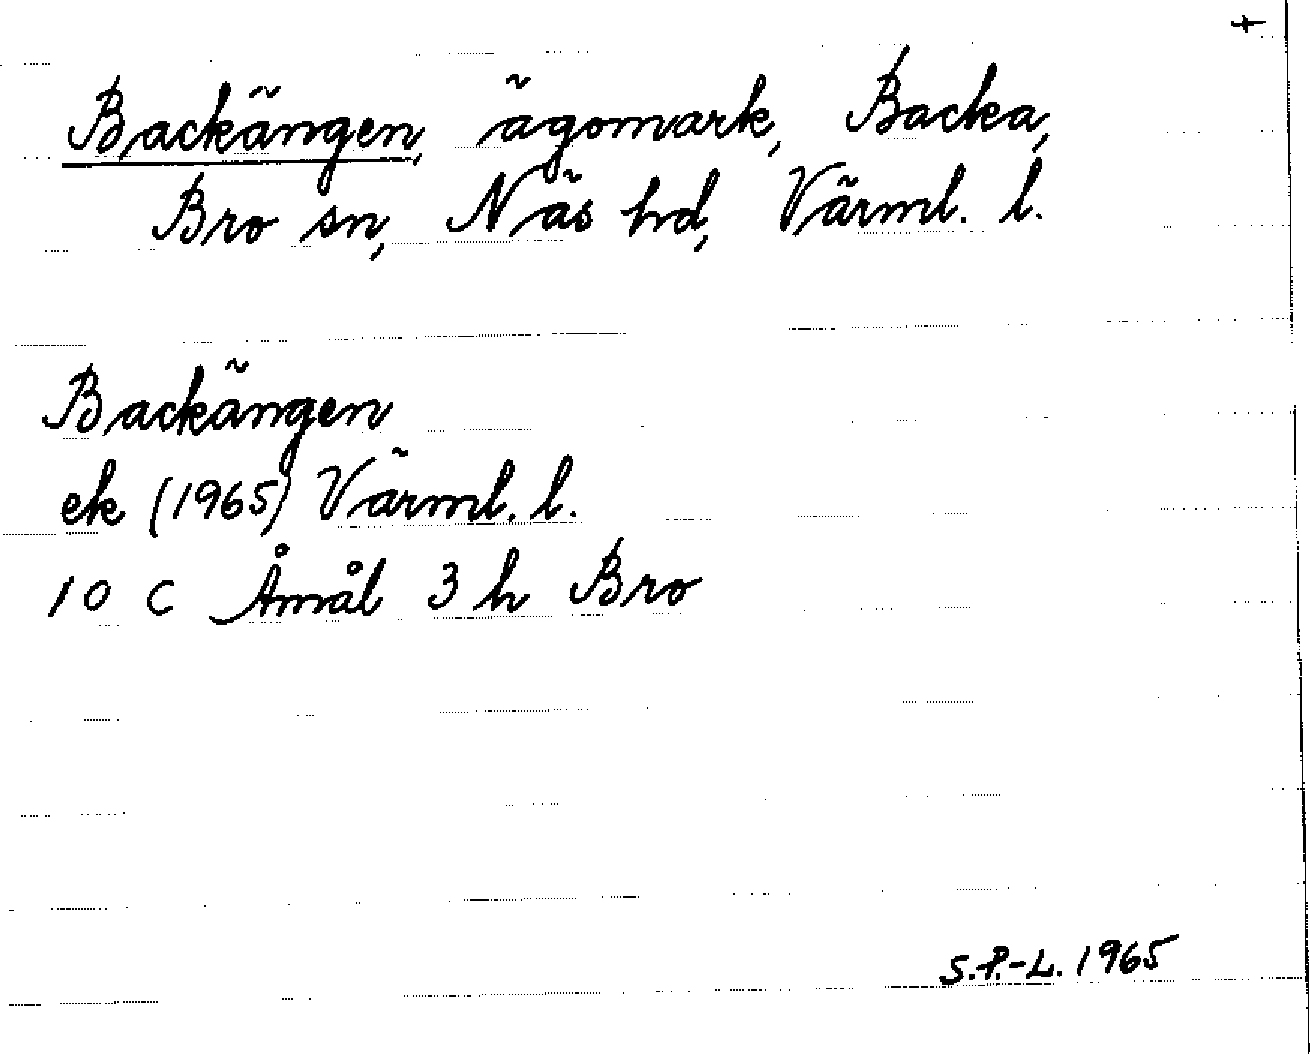 Backängen, ägomark, Backa,
Bro sn, Näs hd, Värml. l.
Backängen
ek (1965) Värml. l.
10 C Åmål 3 h Bro
S.P.-L. 1965